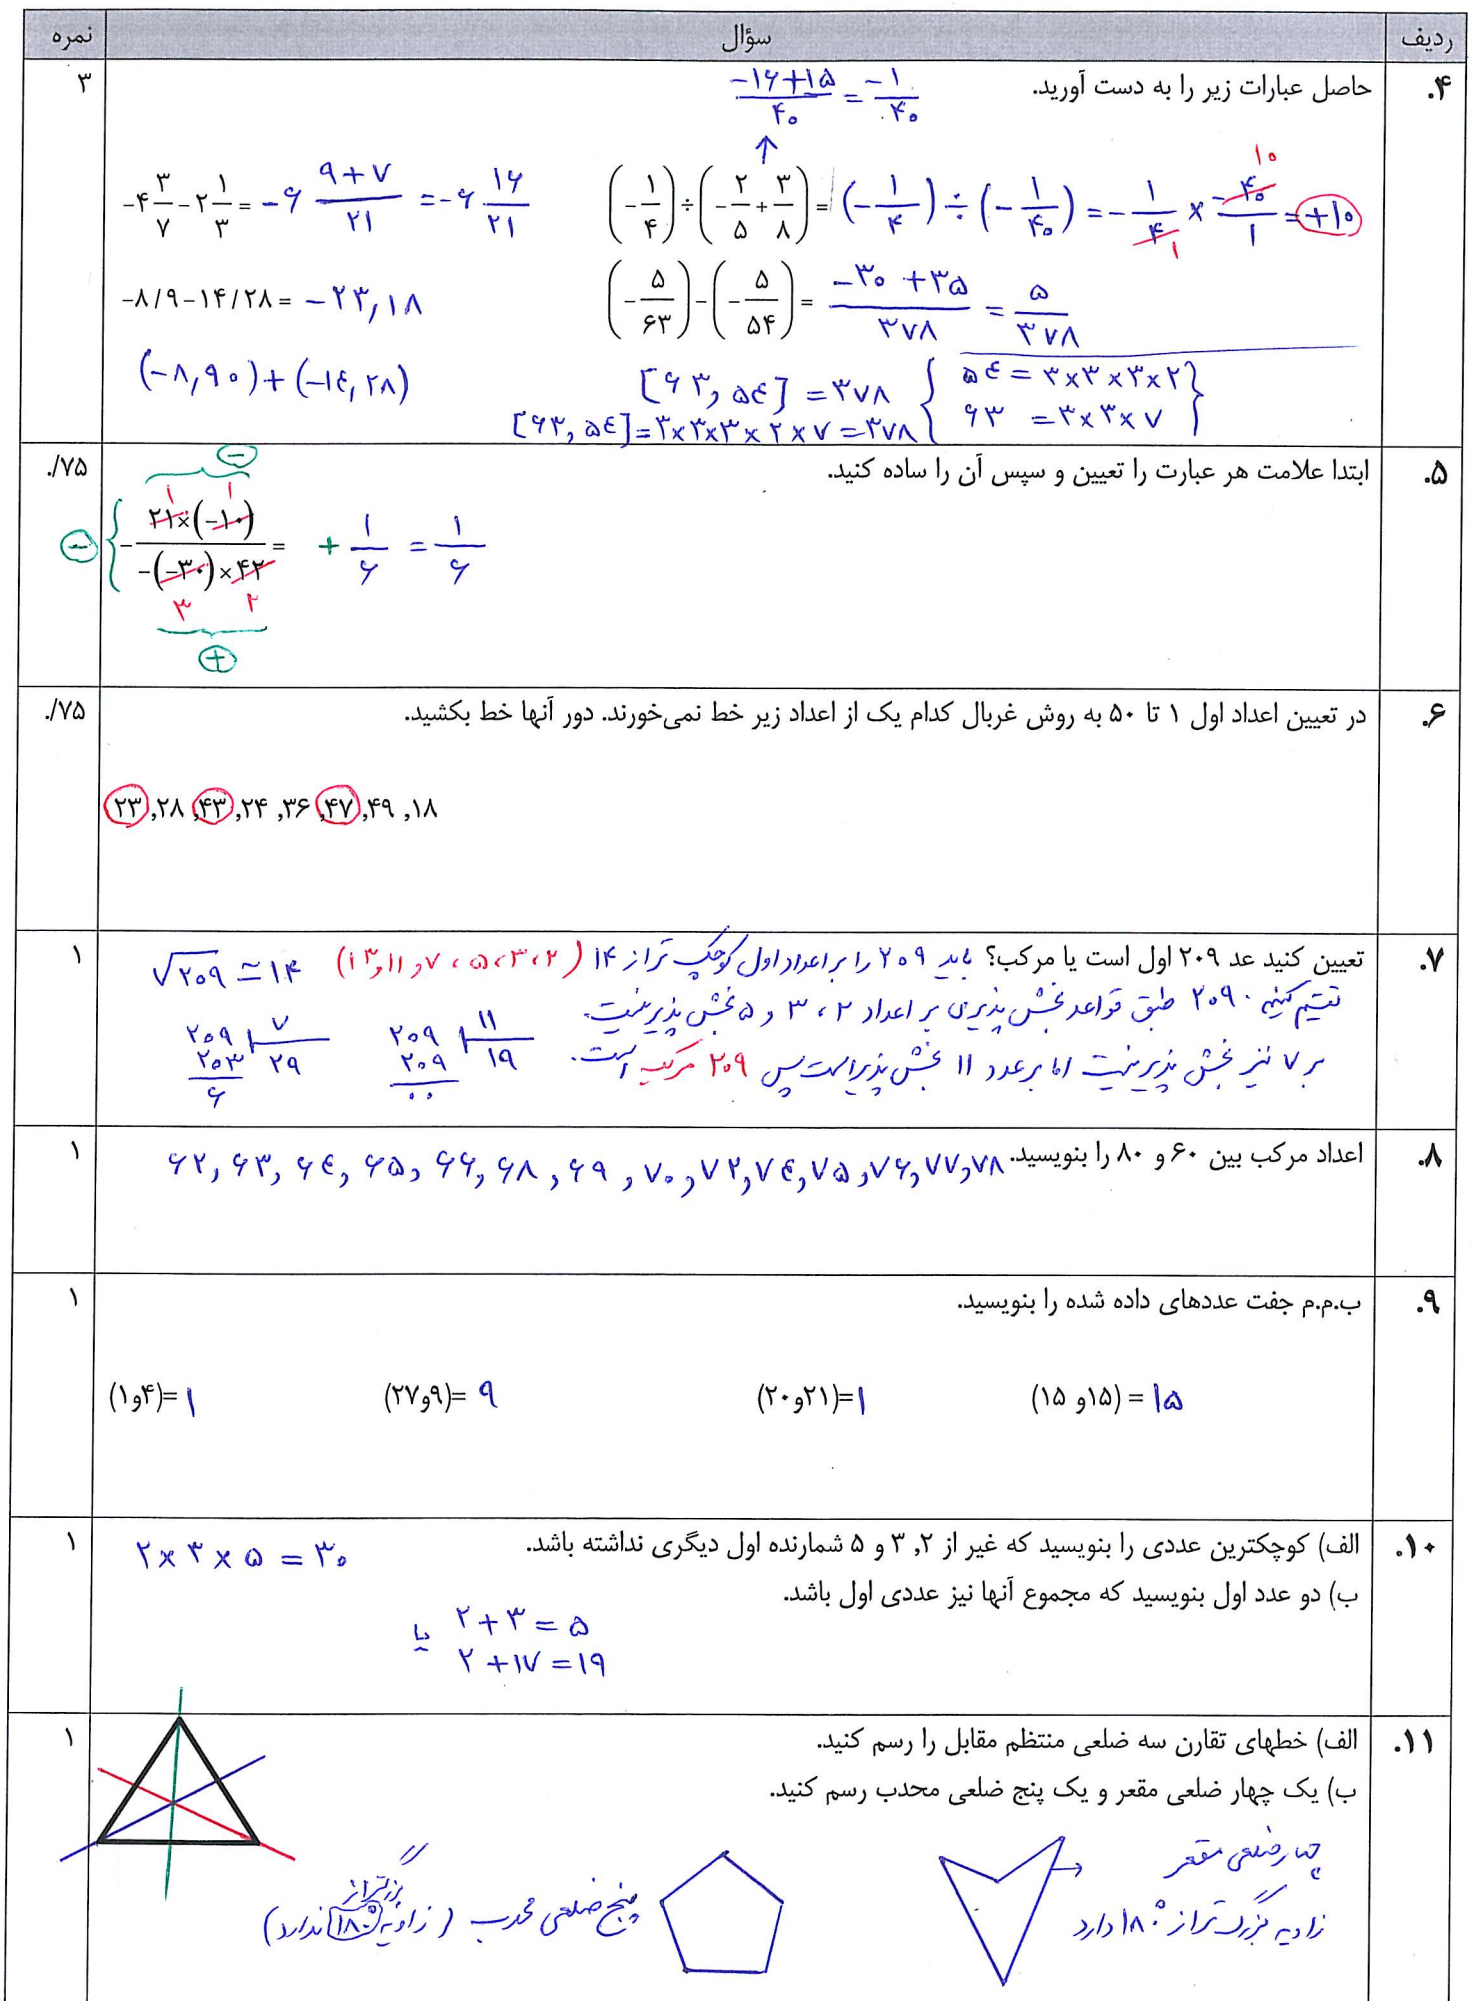 ردیف سؤال نمره
۴. حاصل عبارات زیر را به دست آورید. ۳
(-۱۶+۱۵)/۴۰ = -۱/۴۰
↑
(-۱/۴) ÷ (-۲/۵ + ۳/۸) = (-۱/۴) ÷ (-۱/۴۰) = -۱/۴ × -۴۰/۱ = +۱۰
۱۰
۱
-۴ ۳/۷ - ۲ ۱/۳ = -۶ (۹+۷)/۲۱ = -۶ ۱۶/۲۱
(-۵/۶۳) - (-۵/۵۴) = (-۳۰ + ۳۵)/۳۷۸ = ۵/۳۷۸
-۸/۹ - ۱۴/۲۸ = -۲۳,۱۸
(-۸,۹۰) + (-۱٤,۲۸)
[۶۳, ۵٤] = ۳۷۸ { ۵٤ = ۳×۳×۳×۲ }
[۶۳, ۵٤] = ۳×۳×۳×۲×۷ = ۳۷۸ { ۶۳ = ۳×۳×۷ }
۵. ابتدا علامت هر عبارت را تعیین و سپس آن را ساده کنید. ۷۵/.
−
۱ ۱
− { -(۲۱×(-۱۰))/(-(-۳۰)×۴۲) = + ۱/۶ = ۱/۶
۳ ۲
+
۶. در تعیین اعداد اول ۱ تا ۵۰ به روش غربال کدام یک از اعداد زیر خط نمی‌خورند. دور آنها خط بکشید. ۷۵/.
۲۳, ۲۸, ۴۳, ۲۴, ۳۶, ۴۷, ۴۹, ۱۸
۷. تعیین کنید عد ۲۰۹ اول است یا مرکب؟ باید ۲۰۹ را بر اعداد اول کوچک تر از ۱۴ (۲، ۳، ۵، ۷ و ۱۱ و ۱۳) √۲۰۹ ≃ ۱۴ ۱
تقسیم کنیم. ۲۰۹ طبق قواعد بخش پذیری بر اعداد ۲، ۳ و ۵ بخش پذیر نیست.
بر ۷ نیز بخش پذیر نیست اما بر عدد ۱۱ بخش پذیر است پس ۲۰۹ مرکب است.
۲۰۹ | ۱۱ ۲۰۹ | ۷
۲۰۹ ۱۹ ۲۰۳ ۲۹
۰۰ ۶
۸. اعداد مرکب بین ۶۰ و ۸۰ را بنویسید. ۱
۶۲, ۶۳, ۶٤, ۶۵, ۶۶, ۶۸, ۶۹, ۷۰, ۷۲, ۷٤, ۷۵, ۷۶, ۷۷, ۷۸
۹. ب.م.م جفت عددهای داده شده را بنویسید. ۱
(۱۵ و ۱۵) = ۱۵
(۲۰و۲۱)=۱
(۲۷و۹)= ۹
(۱و۴)= ۱
۱۰. الف) کوچکترین عددی را بنویسید که غیر از ۲, ۳ و ۵ شمارنده اول دیگری نداشته باشد. ۲ × ۳ × ۵ = ۳۰ ۱
ب) دو عدد اول بنویسید که مجموع آنها نیز عددی اول باشد.
۲ + ۳ = ۵
یا
۲ + ۱۷ = ۱۹
۱۱. الف) خطهای تقارن سه ضلعی منتظم مقابل را رسم کنید. ۱
ب) یک چهار ضلعی مقعر و یک پنج ضلعی محدب رسم کنید.
چهارضلعی مقعر
زاویه بزرگ تر از ۱۸۰° دارد
پنج ضلعی محدب (زاویه بزرگتر از ۱۸۰° ندارد)